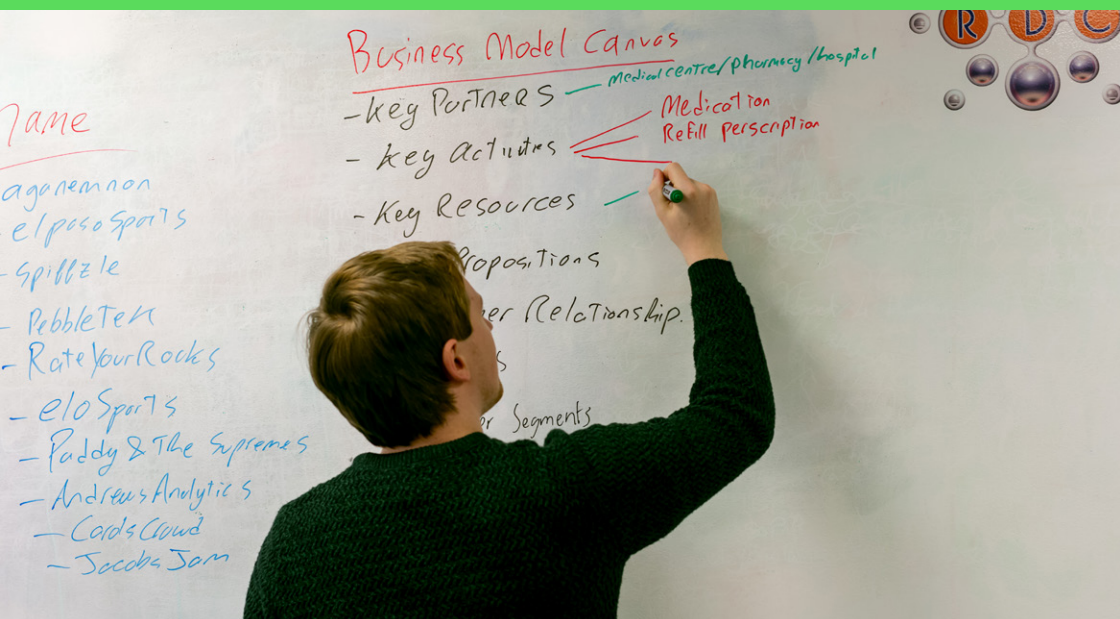 Name
aganemnon
- elpasoSports
- Spiffzle
- PebbleTek
- RateYourRocks
- eloSports
- Paddy & The Supremes
- Andrews Analytics
- CardsCrowd
- Jacobs Jam
Business Model Canvas
- Key Partners — Medical centre/pharmacy/hospital
- Key Activities
Medication
Refill perscription
- Key Resources
Propositions
er Relationship.
s
er Segments
R D C